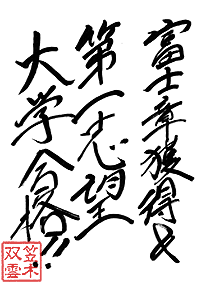 富士章獲得や
第一志望
大学合格!!
笠木
双雲